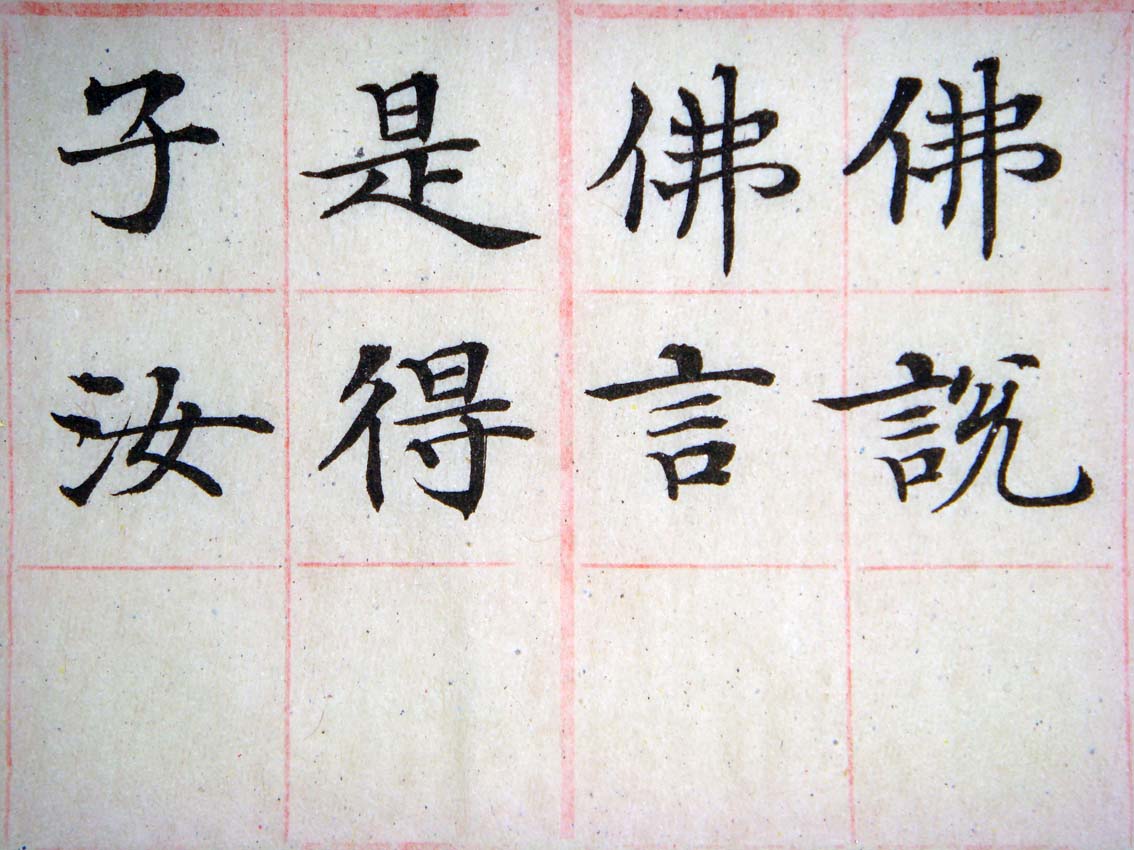 佛說
佛言
是得
子汝